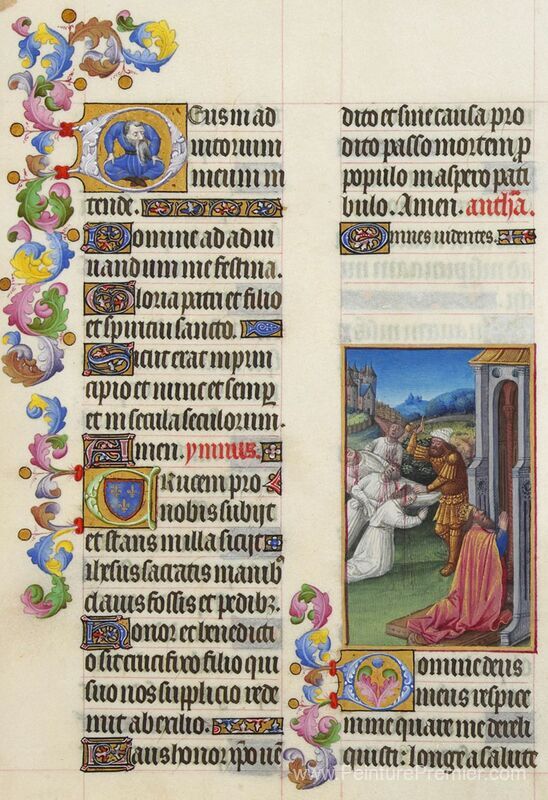 Deus in ad
iutorium
meum in
tende.
Domine ad adiu
uandum me festina.
Gloria patri et filio
et spiritui sancto.
Sicut erat in prin
cipio et nunc et semp
et in secula seculorum.
Amen. ymnus.
Crucem pro
nobis subijt
et stans in illa sicijt
ihesus sacratis manib
clauis fossis et pedibz.
Honor et benedicti
o sit crucifixo filio qui
suo nos supplicio rede
mit ab exilio.
Laus honor xpo
dito et sine causa pro
dito passo mortem p
populo in aspero pati
bulo. Amen. antha.
Omnes uidentes.
Domine deus
meus respice
in me quare me dereli
quisti: longe a salute
www.PeinturePremier.com